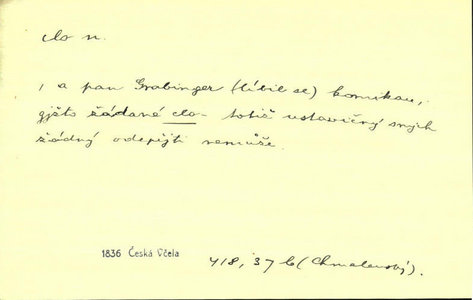 clo n.
, a pan Grabinger (líbil se) komikau,
gjsto žádané clo - totiž ustavičný smjch
žádný odepřjti nemůže.
1836 Česká Včela
418, 37 b (Chmelenský).